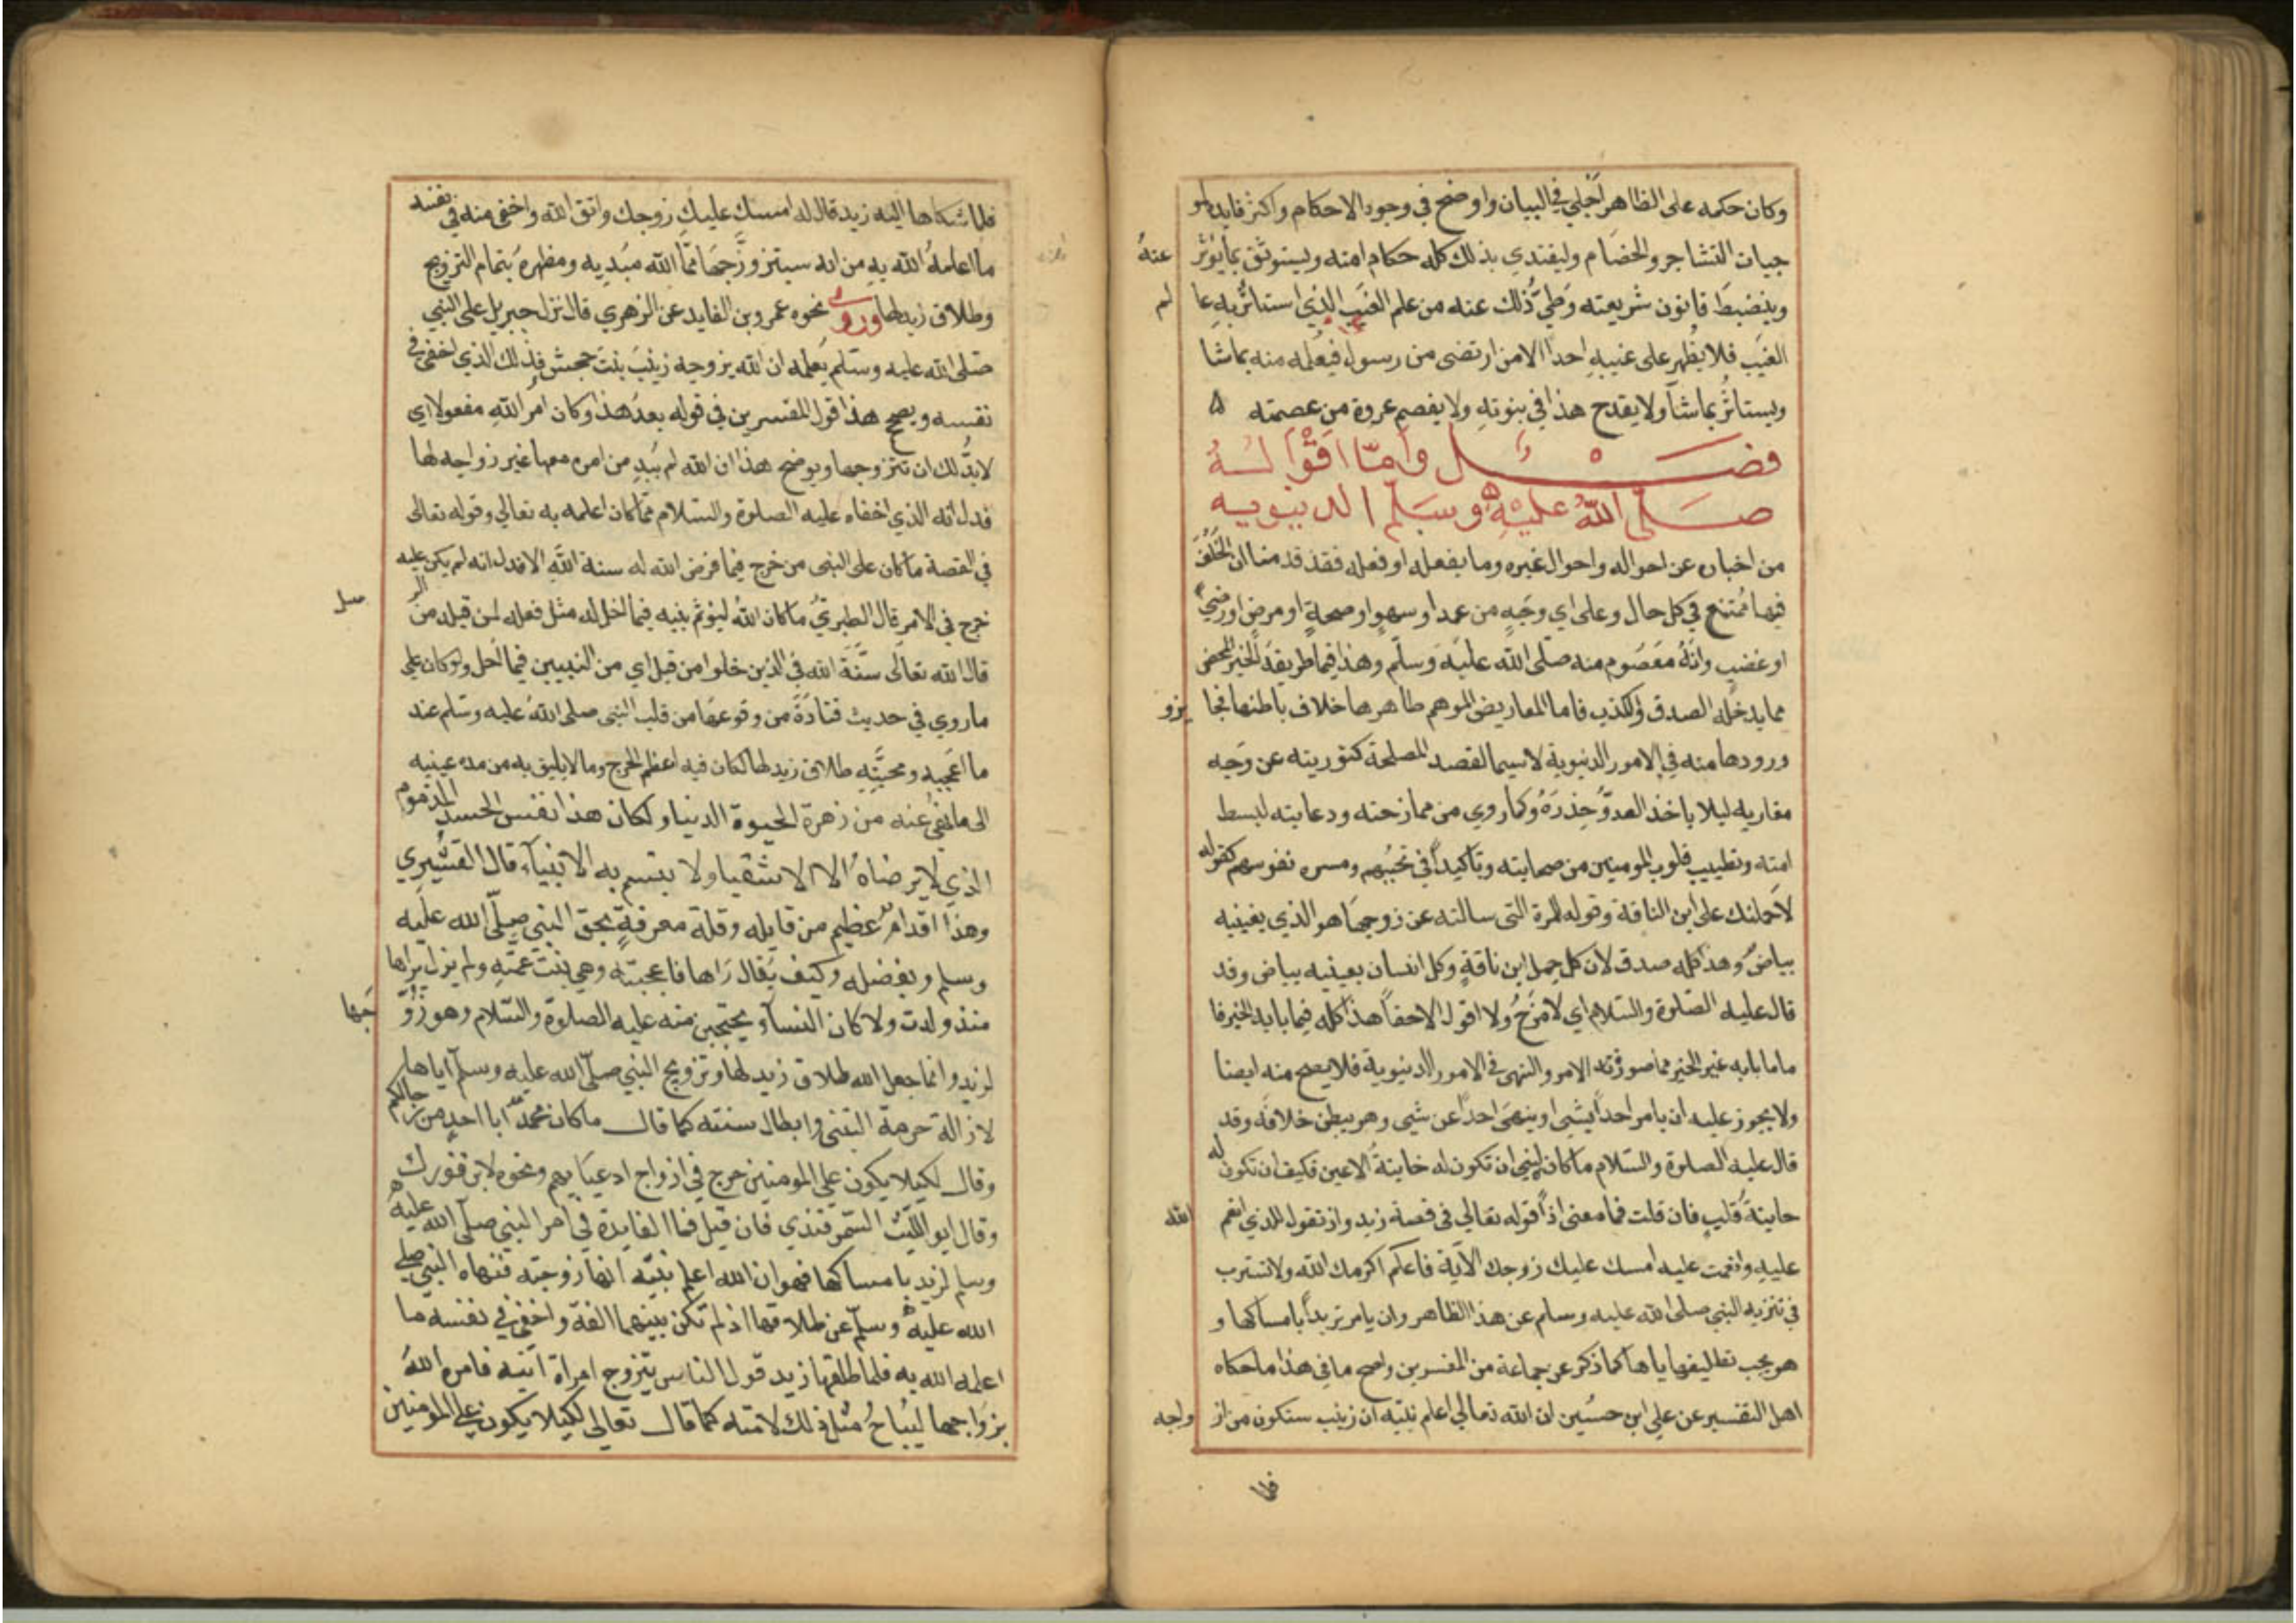 وكان حكمه على الظاهر اجلي في البيان واوضح في وجود الاحكام واكثر فايدة لمو
جبات التشاجر والخصام وليقتدي بذلك كله حكام امته ويستوثق بما يؤثر عنه
وينضبط قانون شريعته وطي ذلك عنه من علم الغيب الذي استاثر به عالم
الغيب فلا يظهر على غيبه احدا الا من ارتضى من رسول فيعلمه منه بما شا
ويستاثر بما شآ ولا يقدح هذا في نبوته ولا يفصم عروة من عصمته ه
فصــــل واما اقواله
صلى الله عليه وسلم الدنيويه
من اخباره عن احواله واحوال غيره وما يفعله او فعله فقد قدمنا ان الخلف
فيها ممتنع في كل حال وعلى اي وجه من عمد او سهو او صحة او مرض او رضي
او غضب وانه معصوم منه صلى الله عليه وسلم وهذا فيما طريقه الخبر المحض
مما يدخله الصدق والكذب فاما المعاريض الموهم ظاهرها خلاف باطنها فجايزو
ورودها منه في الامور الدنيوية لاسيما لقصد المصلحة كتوريته عن وجه
مغازيه ليلا ياخذ العدو حذره وكما روي من ممازحته ودعابته لبسط
امته وتطييب قلوب المومنين من صحابته وتاكيدا في تحببهم ومسره نفوسهم كقوله
لاحملنك على ابن الناقة وقوله للمرة التي سالته عن زوجها هو الذي بعينيه
بياض وهذا كله صدق لان كل جمل ابن ناقة وكل انسان بعينيه بياض وقد
قال عليه الصلوة والسلام اي لامزح ولا اقول الا حقا هذا كله فيما بابه الخبر فا
ما ما بابه غير الخبر مما صورته الامر والنهي في الامور الدنيوية فلا يصح منه ايضا
ولا يجوز عليه ان يامر احدا بشيي او ينهى احدا عن شيي وهو يبطن خلافه وقد
قال عليه الصلوة والسلام ما كان لنبي ان تكون له خاينة الاعين فكيف ان تكون له
خاينة قلب فان قلت فما معنى اذا قوله تعالي في قصة زيد واذ تقول للذي انعم الله
عليه وانعمت عليه امسك عليك زوجك الآية فاعلم اكرمك الله ولا تسترب
في تنزيه النبي صلى الله عليه وسلم عن هذا الظاهر وان يامر زيدا بامساكها و
هو يحب تطليقه اياها كما ذكر عن جماعة من المفسرين واصح ما في هذا ما حكاه
اهل التفسير عن علي ابن حسين ان الله تعالي اعلم نبيه ان زينب ستكون من ازواجه
فلما
فلما شكاها اليه زيد قال له امسك عليك زوجك واتق الله واخفى منه في نفسه
ما اعلمه الله به من انه سيتزوجها مما الله مبديه ومظهره بتمام التزويج
وطلاق زيد لها وروى نحوه عمرو بن الفايد عن الزهري قال نزل جبريل على النبي
صلى الله عليه وسلم يعلمه ان الله يزوجه زينب بنت جحش فذلك الذي اخفى في
نفسه ويصحح هذا قول المفسرين في قوله بعد هذا وكان امر الله مفعولا اي
لابد لك ان تتزوجها ويوضح هذا ان الله لم يبد من امره معها غير زواجه لها
فدل انه الذي اخفاه عليه الصلوة والسلام مما كان اعلمه به تعالي وقوله تعالى
في القصة ما كان على النبي من حرج فيما فرض الله له سنة الله الا فدل انه لم يكن عليه
حرج في الامر قال الطبري ما كان الله ليؤثم نبيه فيما احل له مثل فعله لمن قبله من الرسل
قال الله تعالى سنة الله في الذين خلوا من قبل اي من النبيين فيما احل ولو كان على
ما روي في حديث قتادة من وقوعها من قلب النبي صلى الله عليه وسلم عند
ما اعجبه ومحبته طلاق زيد لها لكان فيه اعظم الحرج وما لا يليق به من مده عينيه
الى ما نهي عنه من زهرة الحيوة الدنيا ولكان هذا نفس الحسد المذموم
الذي لا يرضاه الا الاشقيا ولا يتسم به الانبياء قال القشيري
وهذا اقدام عظيم من قايله وقلة معرفة بحق النبي صلى الله عليه
وسلم وبفضله وكيف يقال راها فاعجبته وهي بنت عمته ولم يزل يراها
منذ ولدت ولا كان النسآء يحتجبن منه عليه الصلوة والسلام وهو زوجها
لزيد وانما جعل الله طلاق زيد لها وتزويج النبي صلى الله عليه وسلم اياها
لازالة حرمة التبني وابطال سنته كما قال ما كان محمد ابا احد من رجالكم
وقال لكيلا يكون على المومنين حرج في ازواج ادعيايهم ونحوه لابن فورك
وقال ابو الليث السمرقندي فان قيل فما الفايدة في امر النبي صلى الله عليه
وسلم لزيد بامساكها فهو ان الله اعلم نبيه انها زوجته فنهاه النبي صلى
الله عليه وسلم عن طلاقها اذ لم تكن بينهما الفة واخفى في نفسه ما
اعلمه الله به فلما طلقها زيد قول الناس يتزوج امراة ابنه فامره الله
بزواجها ليباح مثل ذلك لامته كما قال تعالى لكيلا يكون على المومنين